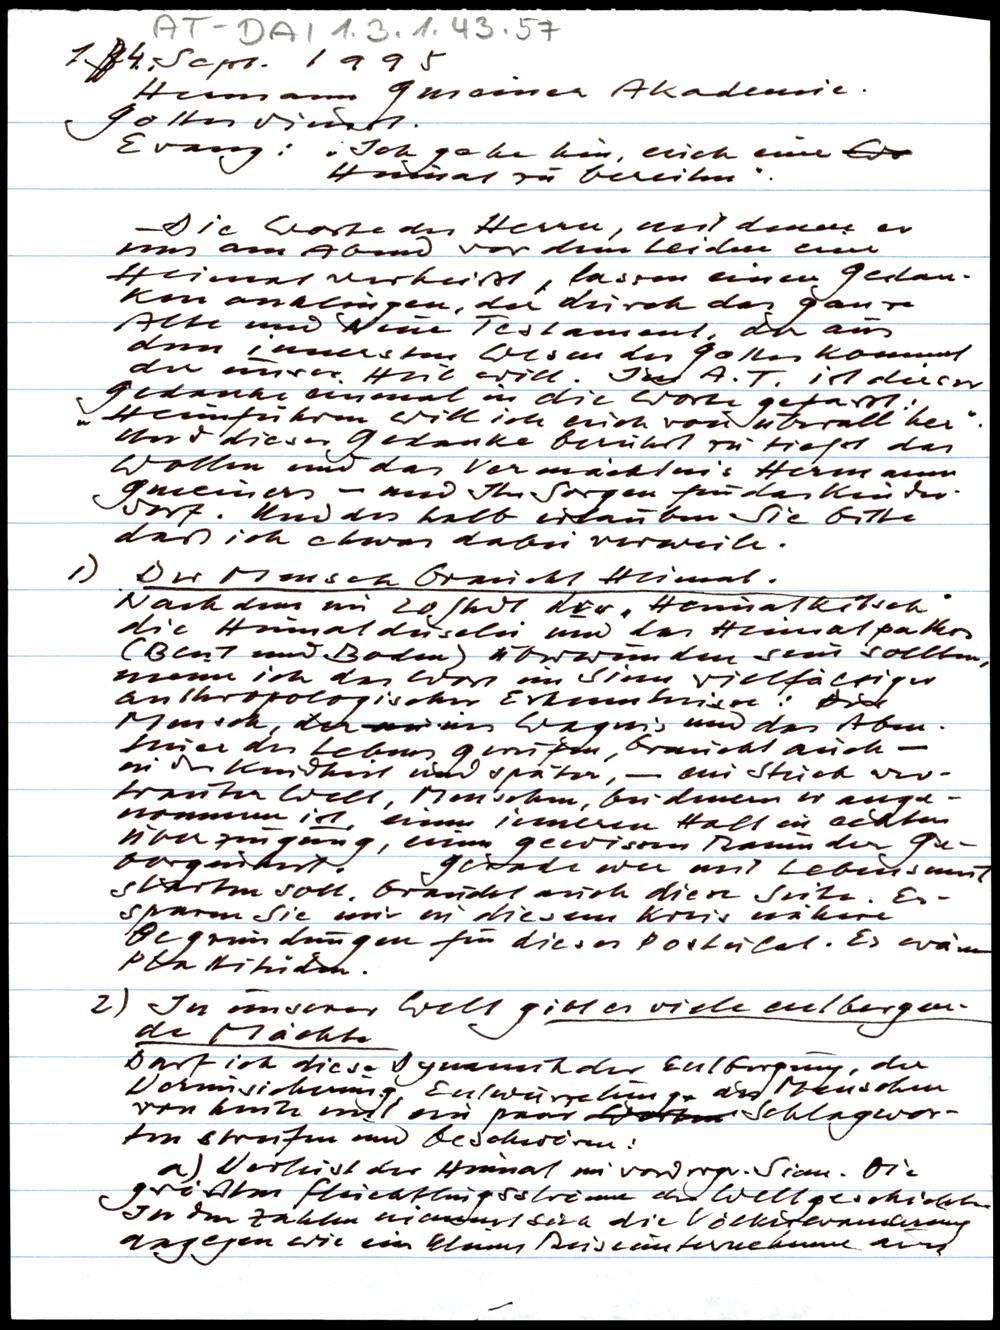 AT-DAI 1.3.1.43.57
14. Sept. 1995
Hermann Gmeiner Akademie.
Gottesdienst.
Evang: "Ich gehe hin, euch eine
Heimat zu bereiten".
– Die Worte des Herrn, mit denen er
uns am Abend vor dem Leiden eine
Heimat verheißt, lassen einen Gedan-
ken anklingen, der durch das ganze
Alte und Neue Testament, der aus
dem innersten Wesen des Gottes kommt
der unser Heil will. Im A.T. ist dieser
Gedanke einmal in die Worte gefasst:
"Heimführen will ich euch von überall her".
Und dieser Gedanke berührt zu tiefst das
Wollen und das Vermächtnis Hermann
Gmeiners – und Ihr Sorgen für das Kinder-
dorf. Und deshalb erlauben Sie bitte
daß ich etwas dabei verweile.
1) Der Mensch braucht Heimat.
Nachdem im 20 Jhdt der "Heimatkitsch"
die Heimatduselei und das Heimatpathos
(Blut und Boden) überwunden sein sollten,
meine ich das Wort im Sinn vielfältiger
anthropologischer Erkenntnisse: Der
Mensch, der ins Wagnis und das Aben-
teuer des Lebens gerufen, braucht auch –
in der Kindheit und später, – ein Stück ver-
trauter Welt, Menschen, bei denen er ange-
nommen ist, einen inneren Halt in echten
Überzeugung, einen gewissen Raum der Ge-
borgenheit. Gerade wer mit Lebensmut
starten soll, braucht auch diese Seite. Er-
sparen Sie mir in diesem Kreis nähere
Begründungen für dieses Postulat. Es wären
Plattitüden.
2) In unserer Welt gibt es viele entbergen-
de Mächte
Darf ich diese Dynamik der Entbergung, der
Verunsicherung, Entwurzelung des Menschen
von heute mit ein paar Schlagwor-
ten streifen und beschwören:
a) Verlust der Heimat im vordergr. Sinn. Die
größten Flüchtlingsströme der Weltgeschichte
In den Zahlen nimmt sich die Völkerwanderung
dagegen wie ein kleines Reiseunternehmen aus